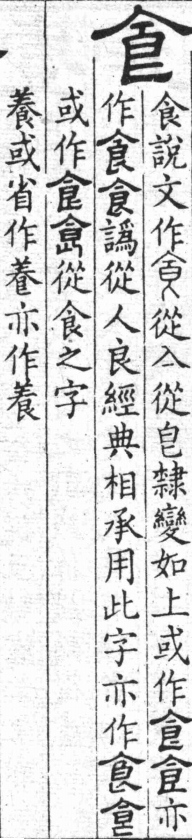 食
食說文作𠊊從亼從皀隸變如上或作𩙿𩚀亦
作𩚁食譌從人良經典相承用此字亦作
或作從食之字
養或省作𩛿亦作養